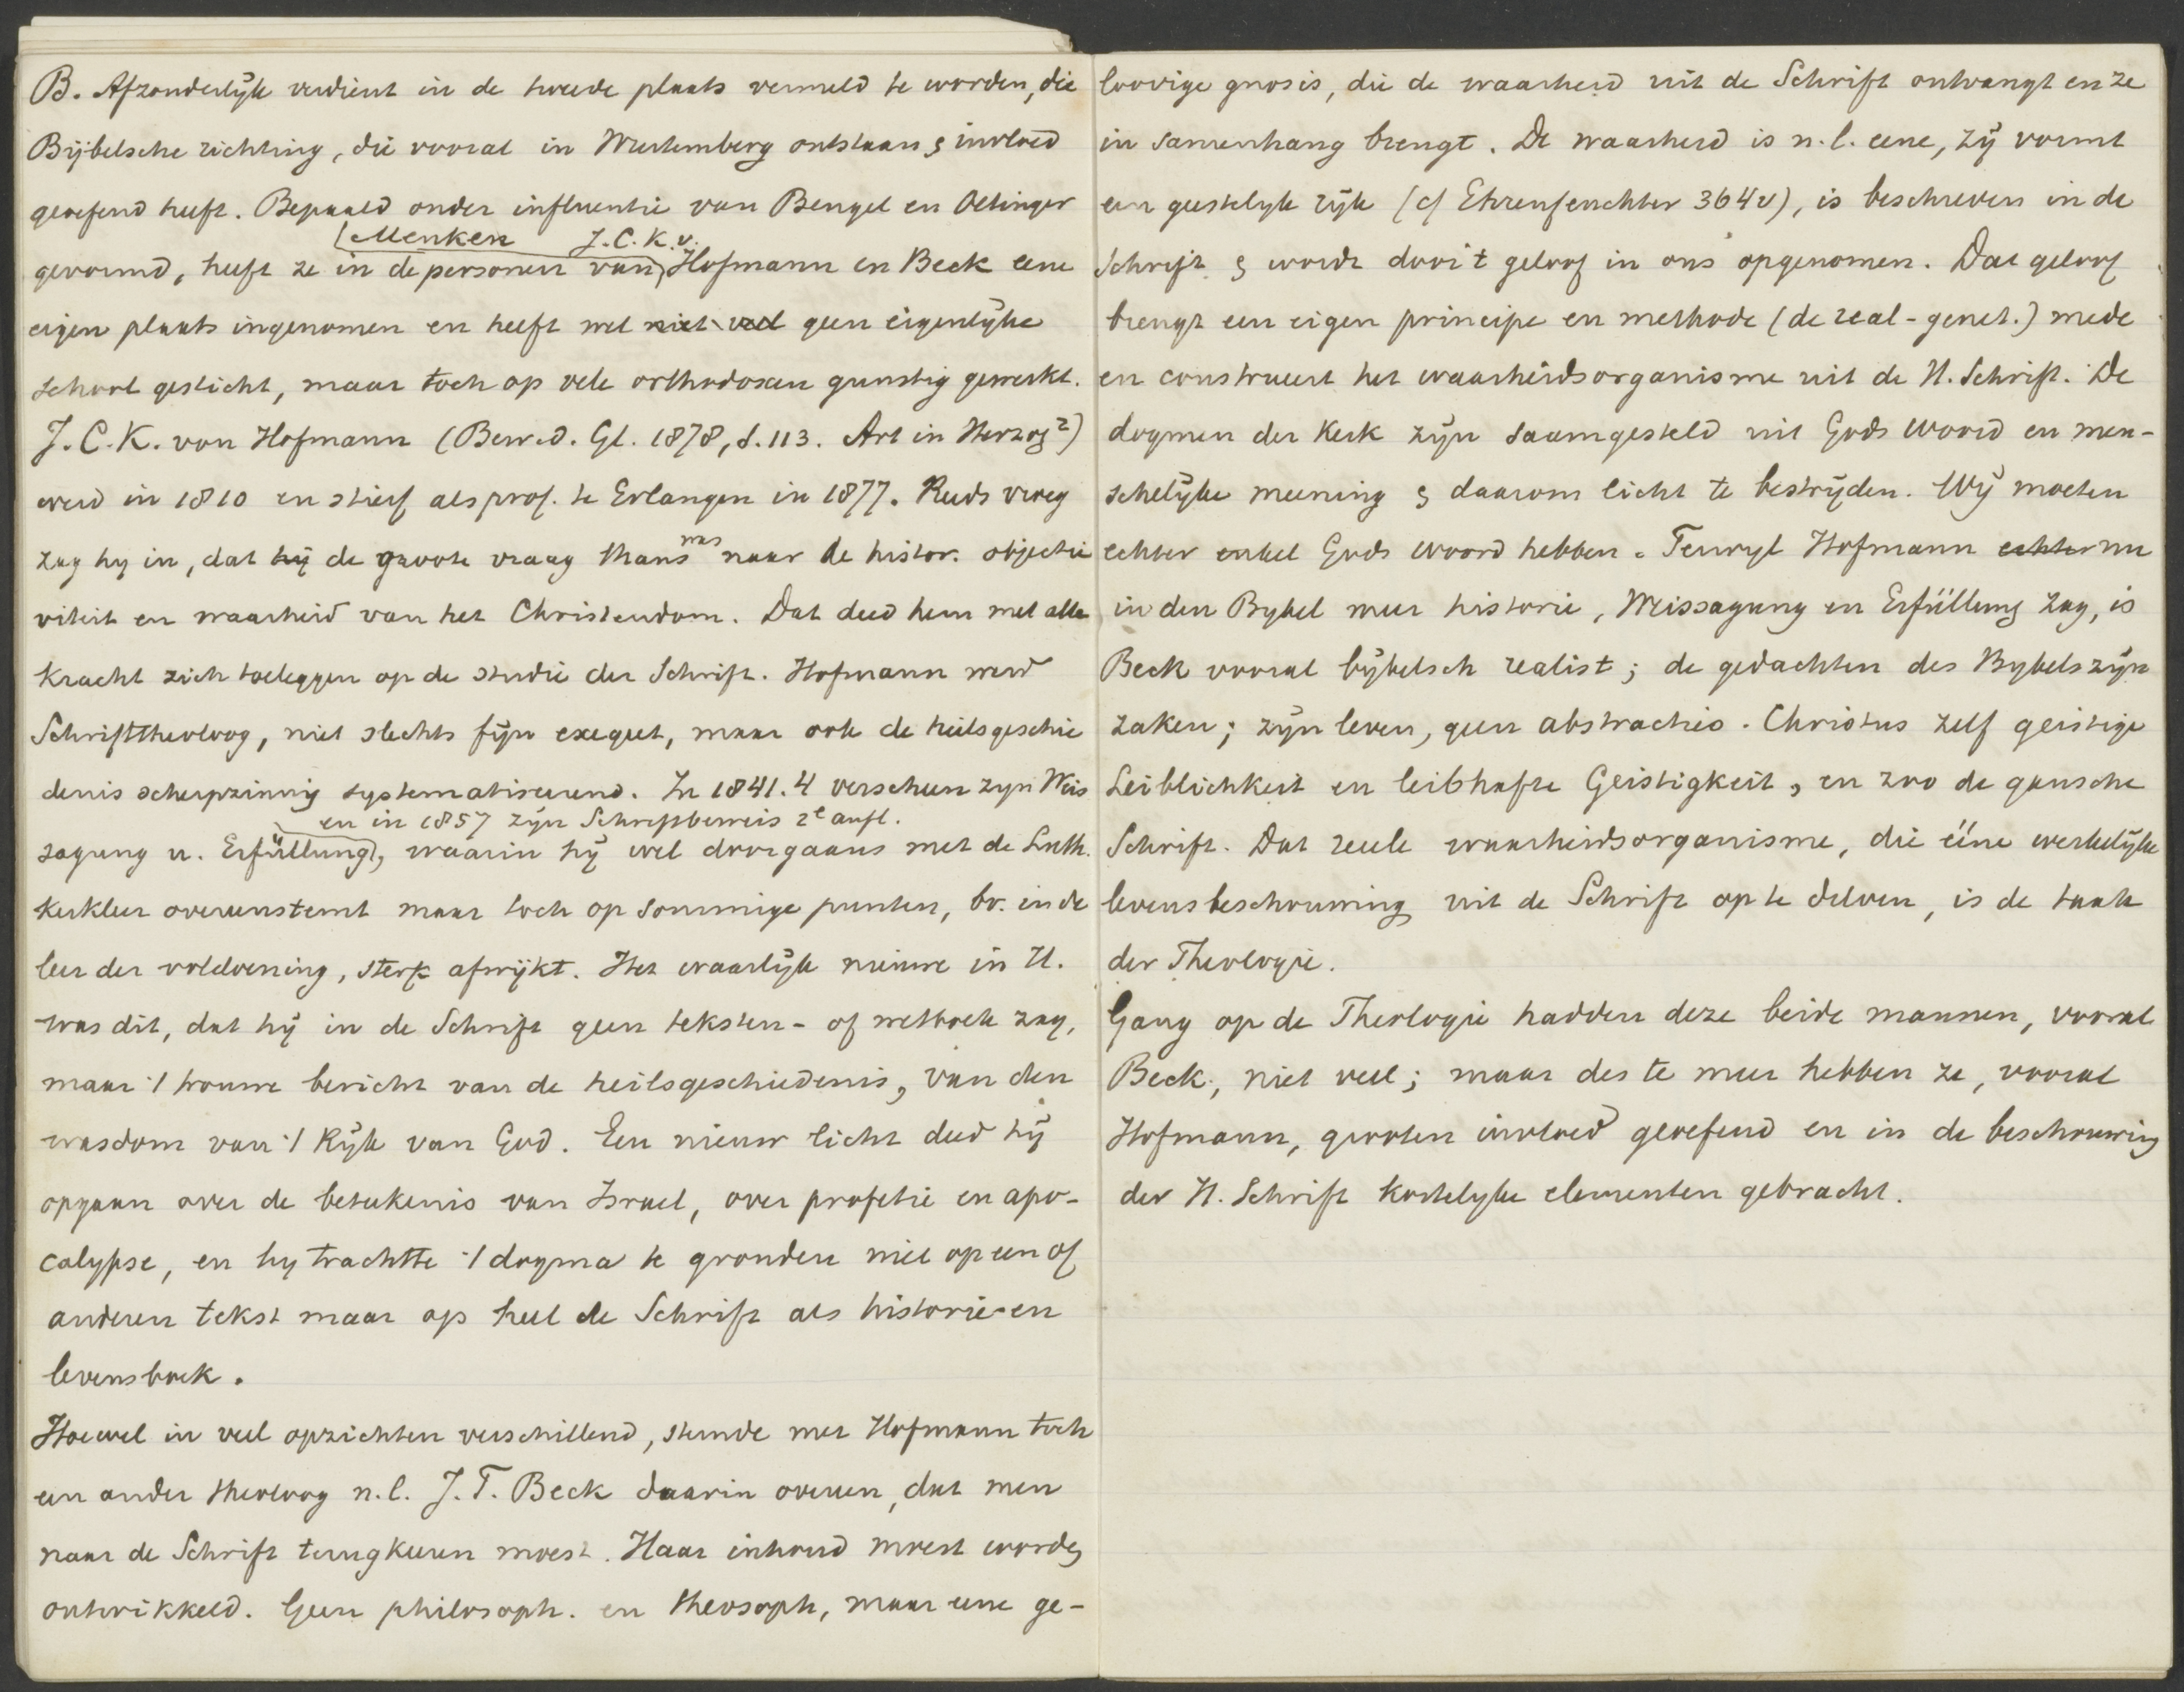 B. Afzonderlijk verdient in de tweede plaats vermeld te worden, die
Bijbelsche richting, die vooral in Wurtemberg ontstaan & invloed
geoefend heeft. Bepaald onder influentie van Bengel en Oetinger
Menken J.C.K.v.
gevormd, heeft ze in de personen van Hofmann en Beck eene
eigen plaats ingenomen en heeft wel niet veel geen eigenlijke
school gesticht, maar toch op vele orthodoxen gunstig gewerkt.
J. C. K. von Hofmann (Bew. d. Gl. 1878, S. 113. Art in Herzog²)
werd in 1810 en stierf als prof. te Erlangen in 1877. Reeds vroeg
was
zag hy in, dat hij de groote vraag thans naar de histor. objecti
viteit en waarheid van het Christendom. Dat deed hem met alle
kracht zich toeleggen op de studie der Schrift. Hofmann werd
Schrifttheoloog, niet slechts fijn exegeet, maar ook de heilsgeschie
denis scherpzinnig systematiseerend. In 1841.4 verscheen zyn Weis
en in 1857 zijn Schriftbeweis 2e aufl.
sagung u. Erfüllung, waarin hij wel doorgaans met de Luth.
kerkleer overeenstemt maar toch op sommige punten, bv. in de
leer der voldoening, sterk afwijkt. Het waarlijk nieuwe in H.
was dit, dat hij in de Schrift geen teksten- of wetboek zag,
maar 't trouwe bericht van de heilsgeschiedenis, van den
wasdom van 't Rijk van God. Een nieuw licht deed hij
opgaan over de beteekenis van Israel, over profetie en apo-
calypse, en hy trachtte 't dogma te gronden niet op een of
anderen tekst maar op heel de Schrift als historie- en
levensboek.
Hoewel in veel opzichten verschillend, stemde met Hofmann toch
een ander theoloog n.l. J. T. Beck daarin overeen, dat men
naar de Schrift terugkeeren moest. Haar inhoud moest worden
ontwikkeld. Geen philosoph. en theosoph, maar eene ge-
loovige gnosis, die de waarheid uit de Schrift ontvangt en ze
in samenhang brengt. De waarheid is n.l. eene, zij vormt
een geestelyk rijk (cf Ehrenfeuchter 364v), is beschreven in de
Schrift & wordt door 't geloof in ons opgenomen. Dat geloof
brengt een eigen principe en methode (de real-genet.) mede
en construeert het waarheidsorganisme uit de H. Schrift. De
dogmen der Kerk zijn saamgesteld uit Gods woord en men-
schelijke meening & daarom licht te bestrijden. Wij moeten
echter enkel Gods woord hebben. Terwyl Hofmann echter nu
in den Bybel meer historie, Weissagung en Erfüllung zag, is
Beck vooral bijbelsch realist; de gedachten des Bybels zijn
zaken; zijn leven, geen abstracties. Christus zelf geistige
Leiblichkeit en leibhafte Geistigkeit, en zoo de gansche
Schrift. Dat reeele waarheidsorganisme, die ééne werkelijke
levensbeschouwing uit de Schrift op te delven, is de taak
der Theologie.
Gang op de Theologie hadden deze beide mannen, vooral
Beck, niet veel; maar des te meer hebben ze, vooral
Hofmann, grooten invloed geoefend en in de beschouwing
der H. Schrift kostelyke elementen gebracht.